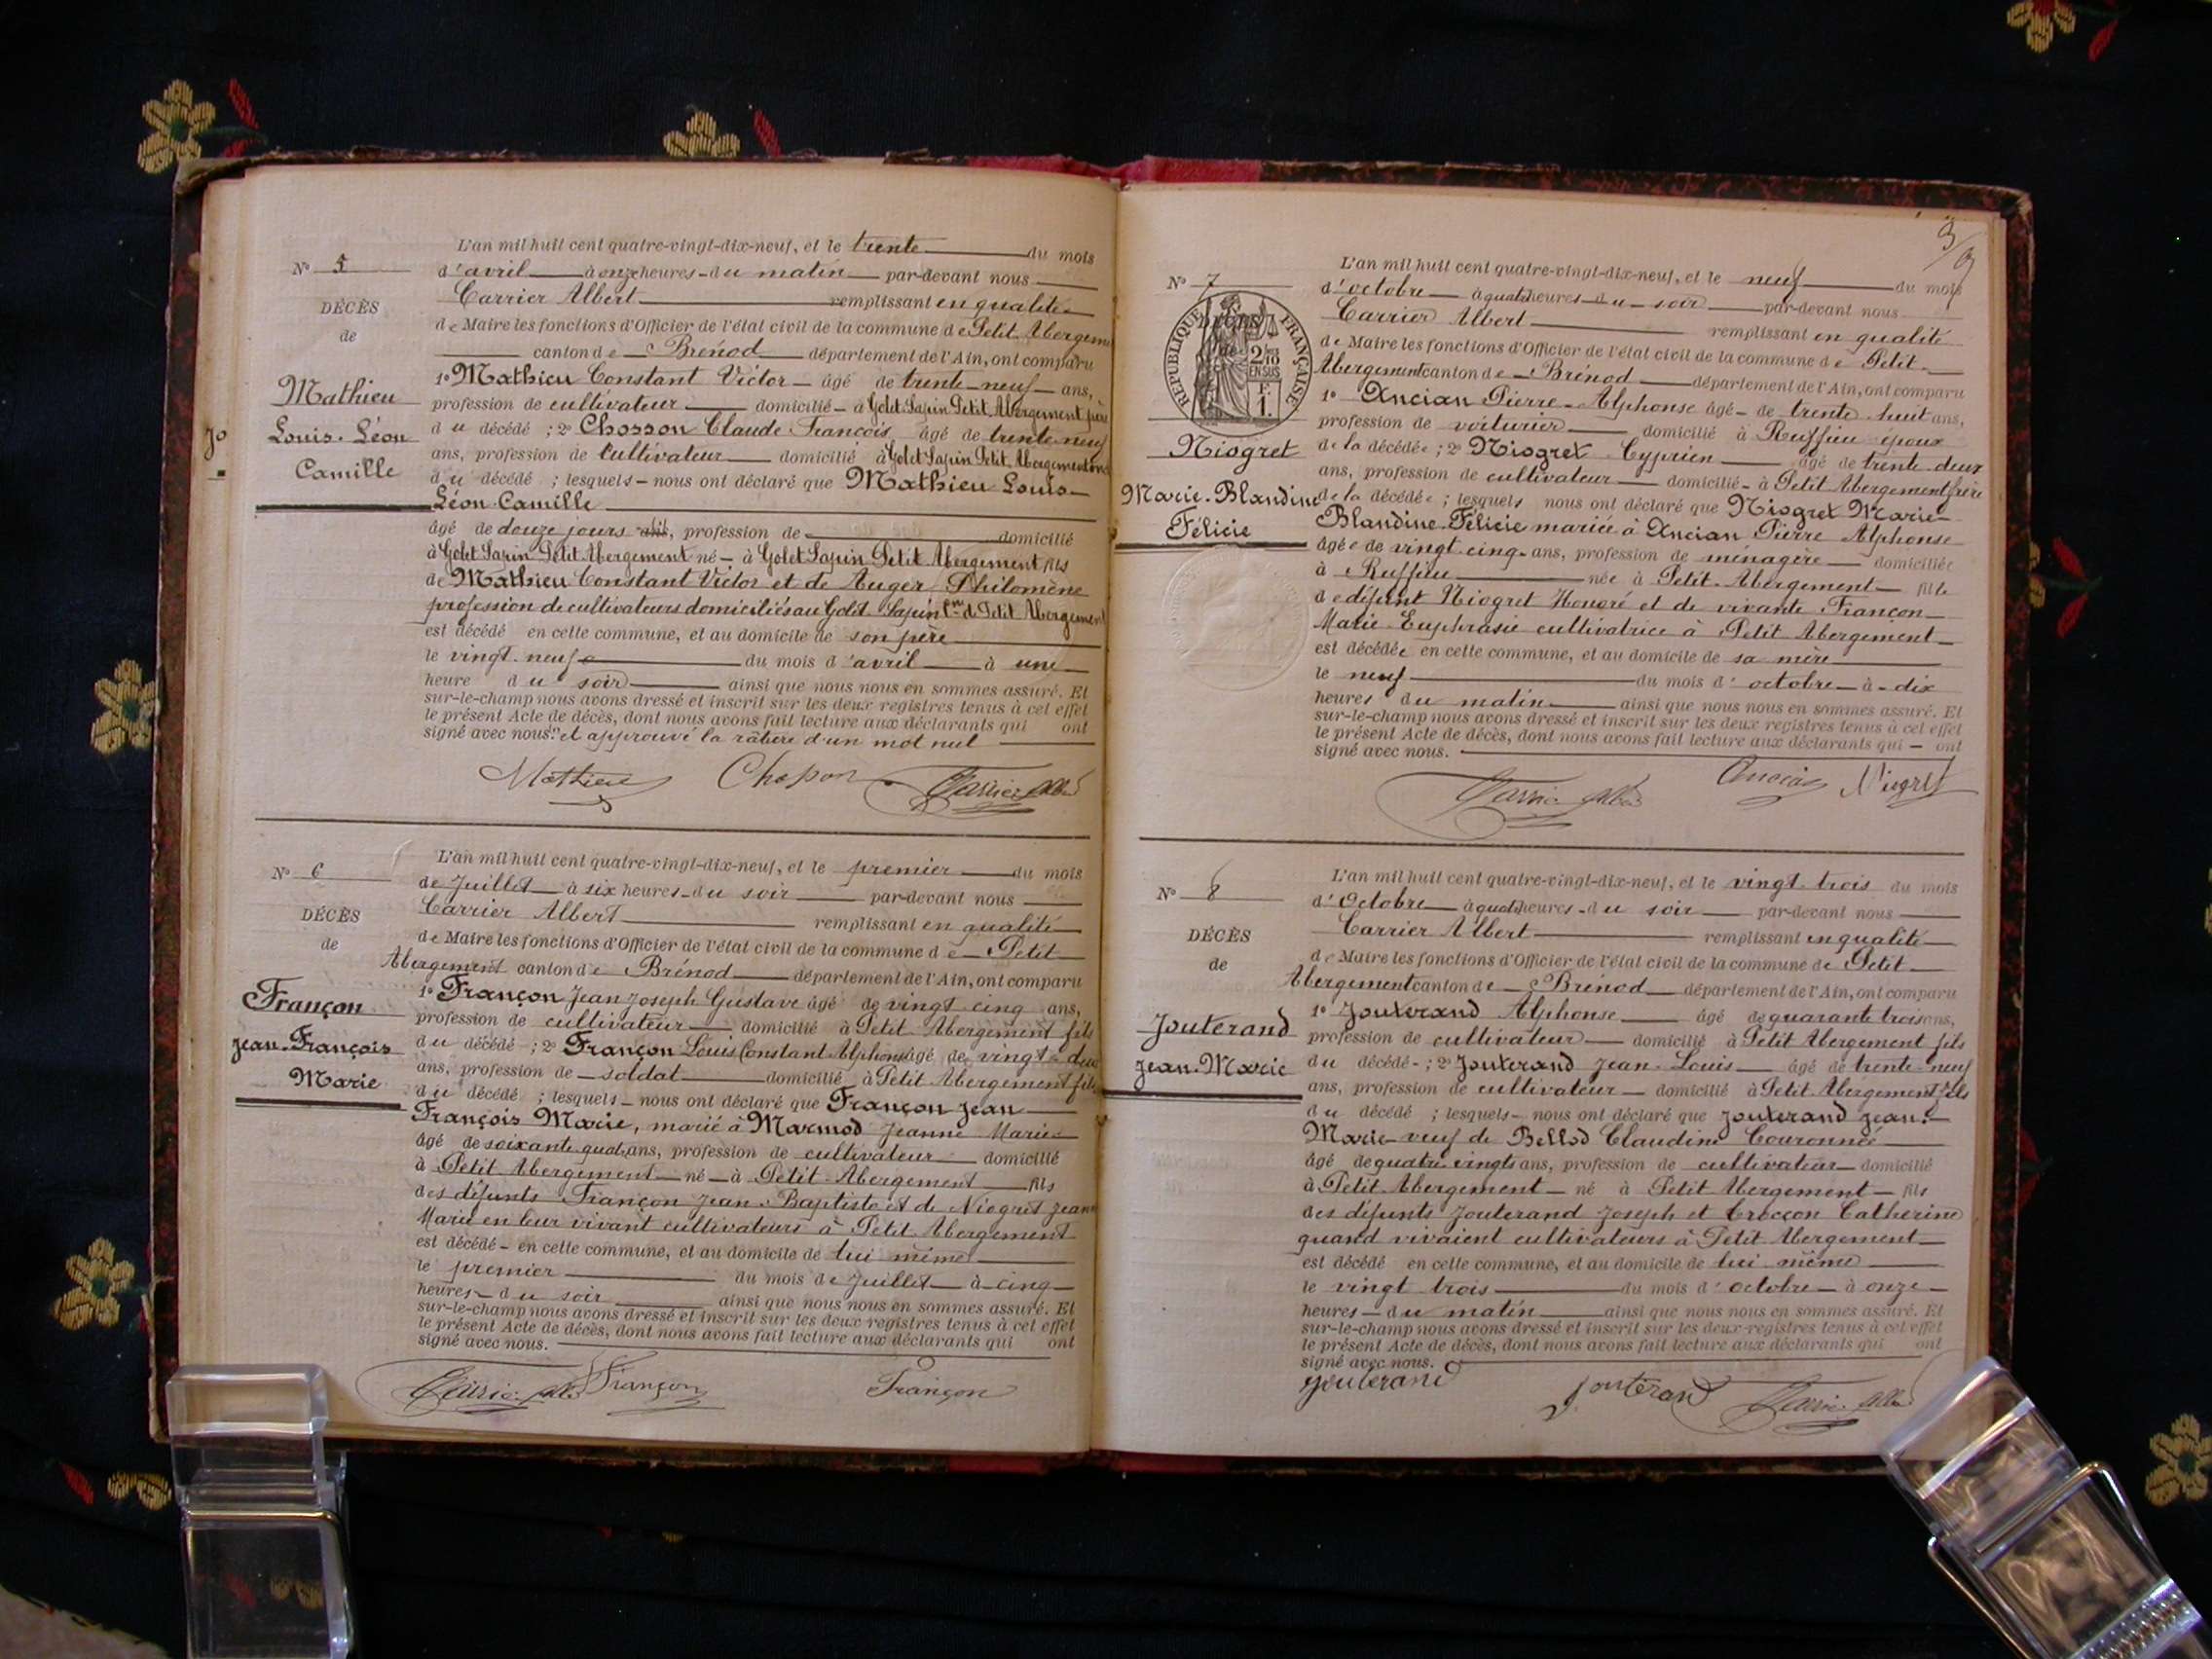 L'an mil huit cent quatre-vingt-dix-neuf, et le trente du mois
N° 5
d'avril à onze heures du matin par-devant nous
Carrier Albert remplissant en qualité
DÉCÈS
de Maire les fonctions d'Officier de l'état civil de la commune de Petit Abergement
de
canton de Brénod département de l'Ain, ont comparu
1° Mathieu Constant Victor âgé de trente-neuf ans,
Mathieu
profession de cultivateur domicilié à Golet Sapin Petit Abergement père
70
Louis-Léon
du décédé ; 2° Chosson Claude François âgé de trente-neuf
Camille
ans, profession de Cultivateur domicilié à Golet Sapin Petit Abergement
du décédé ; lesquels nous ont déclaré que Mathieu Louis
Léon Camille
âgé de douze jours ans, profession de domicilié
à Golet Sapin Petit Abergement né à Golet Sapin Petit Abergement fils
de Mathieu Constant Victor et de Auger Philomène
profession de cultivateurs domiciliés au Golet Sapin Cne de Petit Abergement
est décédé en cette commune, et au domicile de son père
le vingt-neuf du mois d'avril à une
heure du soir ainsi que nous nous en sommes assuré. Et
sur-le-champ nous avons dressé et inscrit sur les deux registres tenus à cet effet
le présent Acte de décès, dont nous avons fait lecture aux déclarants qui ont
signé avec nous et approuvé la râture d'un mot nul
Mathieu Chapon Carrier Albert
L'an mil huit cent quatre-vingt-dix-neuf, et le premier du mois
N° 6
de Juillet à six heures du soir par-devant nous
Carrier Albert remplissant en qualité
DÉCÈS
de Maire les fonctions d'Officier de l'état civil de la commune de Petit
de
Abergement canton de Brénod département de l'Ain, ont comparu
1° Françon Jean Joseph Gustave âgé de vingt cinq ans,
Françon
profession de cultivateur domicilié à Petit Abergement fils
Jean-François
du décédé ; 2° Françon Louis Constant Alphonse âgé de vingt-deux
Marie
ans, profession de soldat domicilié à Petit Abergement fils
du décédé ; lesquels nous ont déclaré que Françon Jean
François Marie, marié à Marmod Jeanne Marie
âgé de soixante quatre ans, profession de cultivateur domicilié
à Petit Abergement né à Petit Abergement fils
des défunts Françon Jean Baptiste et de Niogret Jeanne
Marie en leur vivant cultivateurs à Petit Abergement
est décédé en cette commune, et au domicile de lui même
le premier du mois de Juillet à cinq
heures du soir ainsi que nous nous en sommes assuré. Et
sur-le-champ nous avons dressé et inscrit sur les deux registres tenus à cet effet
le présent Acte de décès, dont nous avons fait lecture aux déclarants qui ont
signé avec nous.
Carrier Albert Françon Françon
3
L'an mil huit cent quatre-vingt-dix-neuf, et le neuf du mois
N° 7
d'octobre à quatre heures du soir par-devant nous
Carrier Albert remplissant en qualité
DÉCÈS
de
RÉPUBLIQUE FRANÇAISE
2/10 EN SUS
F. 1.
de Maire les fonctions d'Officier de l'état civil de la commune de Petit
Abergement canton de Brénod département de l'Ain, ont comparu
1° Ancian Pierre-Alphonse âgé de trente huit ans,
profession de voiturier domicilié à Ruffieu époux
Niogret
de la décédée ; 2° Niogret Cyprien âgé de trente deux
ans, profession de cultivateur domicilié à Petit Abergement frère
Marie-Blandine
de la décédée ; lesquels nous ont déclaré que Niogret Marie
Félicie
Blandine-Félicie mariée à Ancian Pierre Alphonse
âgée de vingt cinq ans, profession de ménagère domiciliée
à Ruffieu née à Petit Abergement fille
de défunt Niogret Honoré et de vivante Françon
Marie Euphrasie cultivatrice à Petit Abergement
est décédée en cette commune, et au domicile de sa mère
le neuf du mois d'octobre à dix
heures du matin ainsi que nous nous en sommes assuré. Et
sur-le-champ nous avons dressé et inscrit sur les deux registres tenus à cet effet
le présent Acte de décès, dont nous avons fait lecture aux déclarants qui ont
signé avec nous.
Carrier Albert Ancian Niogret
L'an mil huit cent quatre-vingt-dix-neuf, et le vingt trois du mois
N° 8
d'Octobre à quatre heures du soir par-devant nous
Carrier Albert remplissant en qualité
DÉCÈS
de Maire les fonctions d'Officier de l'état civil de la commune de Petit
de
Abergement canton de Brénod département de l'Ain, ont comparu
1° Jouterand Alphonse âgé de quarante trois ans,
Jouterand
profession de cultivateur domicilié à Petit Abergement fils
Jean-Marie
du décédé ; 2° Jouterand Jean-Louis âgé de trente-neuf
ans, profession de cultivateur domicilié à Petit Abergement fils
du décédé ; lesquels nous ont déclaré que Jouterand Jean-
Marie veuf de Bellod Claudine Couronnée
âgé de quatre vingts ans, profession de cultivateur domicilié
à Petit Abergement né à Petit Abergement fils
des défunts Jouterand Joseph et Crocçon Catherine
quand vivaient cultivateurs à Petit Abergement
est décédé en cette commune, et au domicile de lui même
le vingt trois du mois d'octobre à onze
heures du matin ainsi que nous nous en sommes assuré. Et
sur-le-champ nous avons dressé et inscrit sur les deux registres tenus à cet effet
le présent Acte de décès, dont nous avons fait lecture aux déclarants qui ont
signé avec nous.
Jouterand Jouterand Carrier Albert